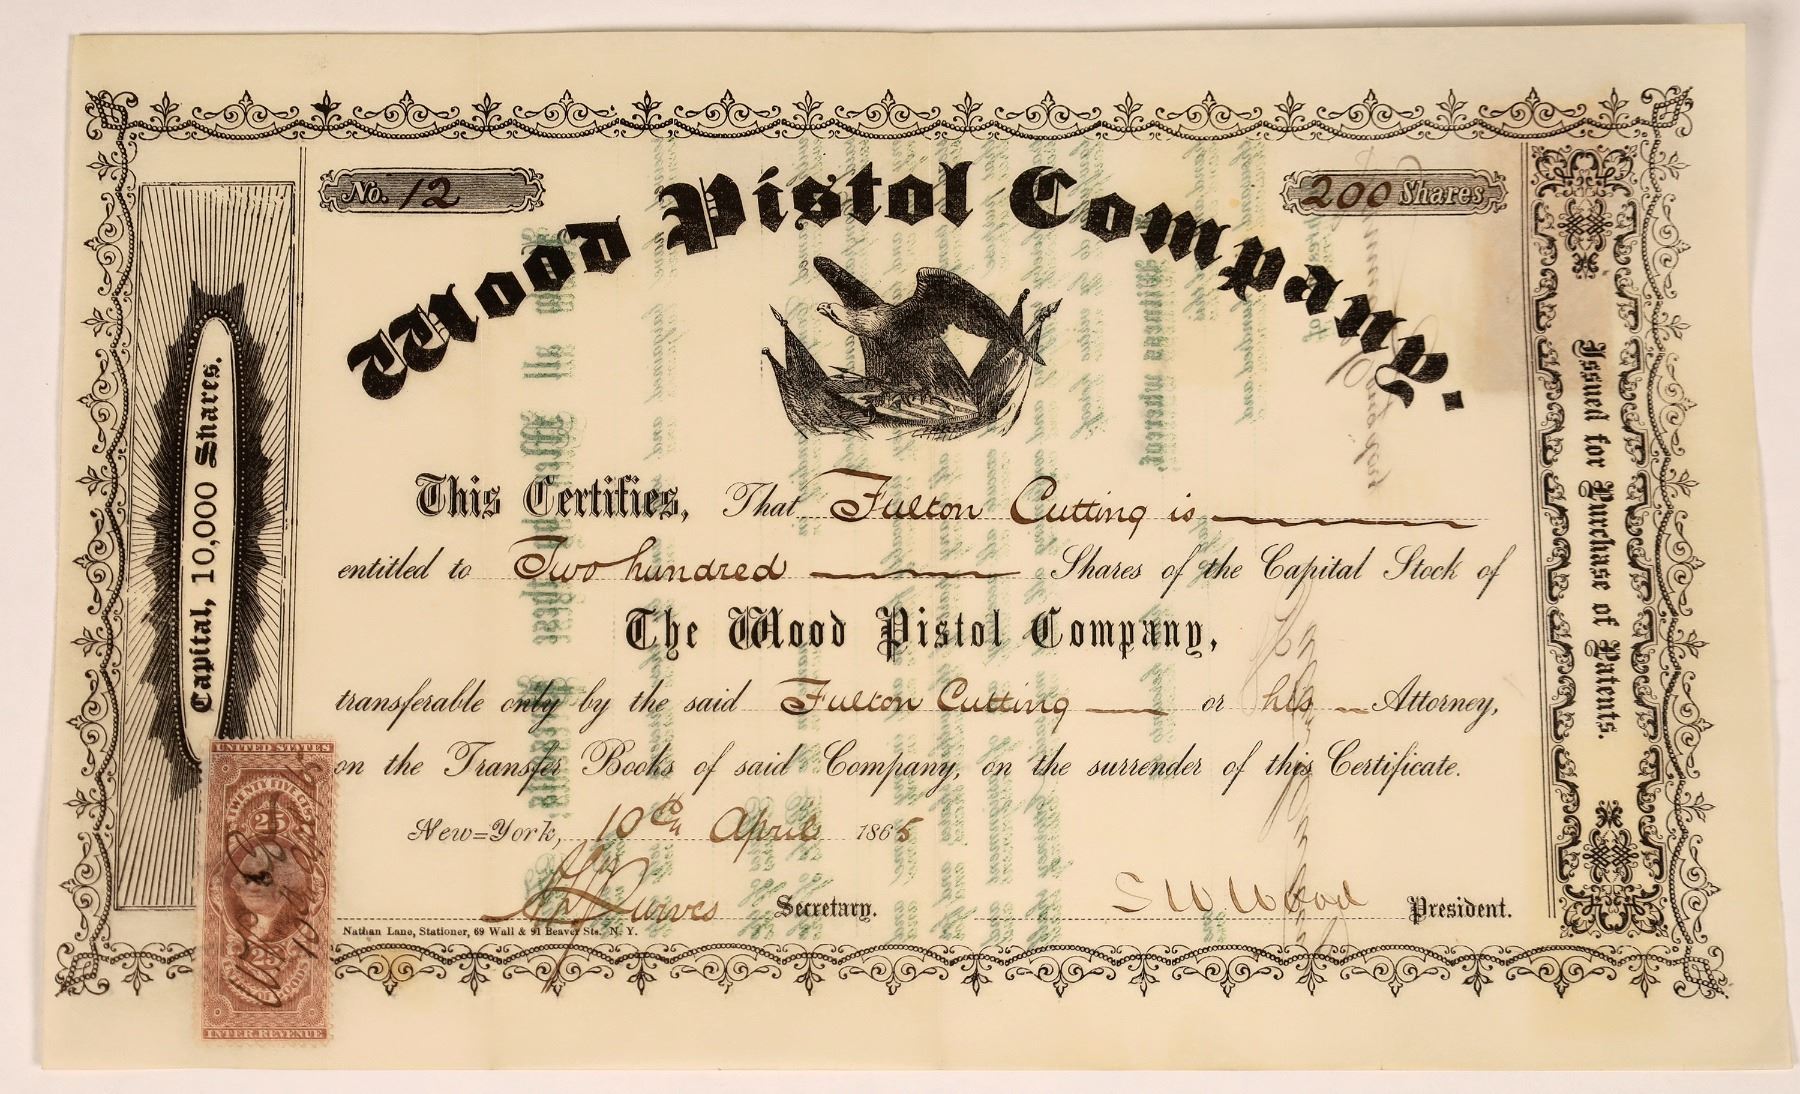 No. 12
200 Shares
Wood Pistol Company.
Capital, 10,000 Shares.
Issued for Purchase of Patents.
This Certifies, That Fulton Cutting is
entitled to Two hundred Shares of the Capital Stock of
The Wood Pistol Company,
transferable only by the said Fulton Cutting or his Attorney,
on the Transfer Books of said Company, on the surrender of this Certificate.
New=York, 10th April 1865
Secretary.
S W Wood President.
Nathan Lane, Stationer, 69 Wall & 91 Beaver Sts. N. Y.
UNITED STATES
25
25
INTER. REVENUE